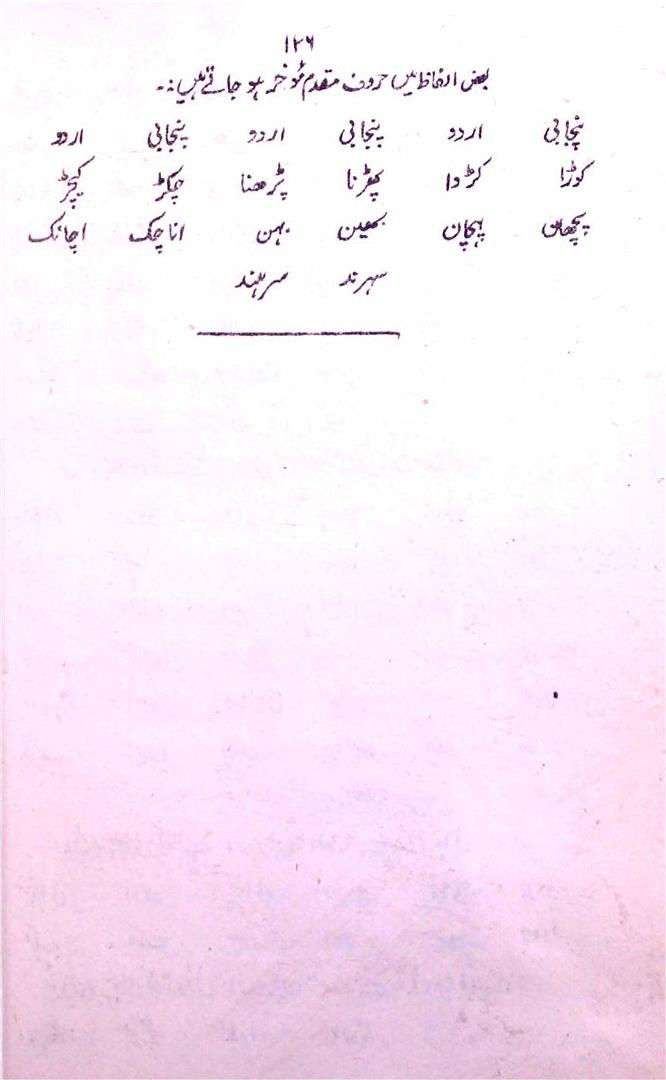 ۱۲۶
بعض الفاظ میں حروف مقدم مؤخر ہو جاتے ہیں:۔
پنجابی اردو پنجابی اردو پنجابی اردو
کوڑا کڑوا پھڑنا پڑھنا چکڑ کیچڑ
پچھان پہچان بھین بہن اناچک اچانک
سہرند سرہند